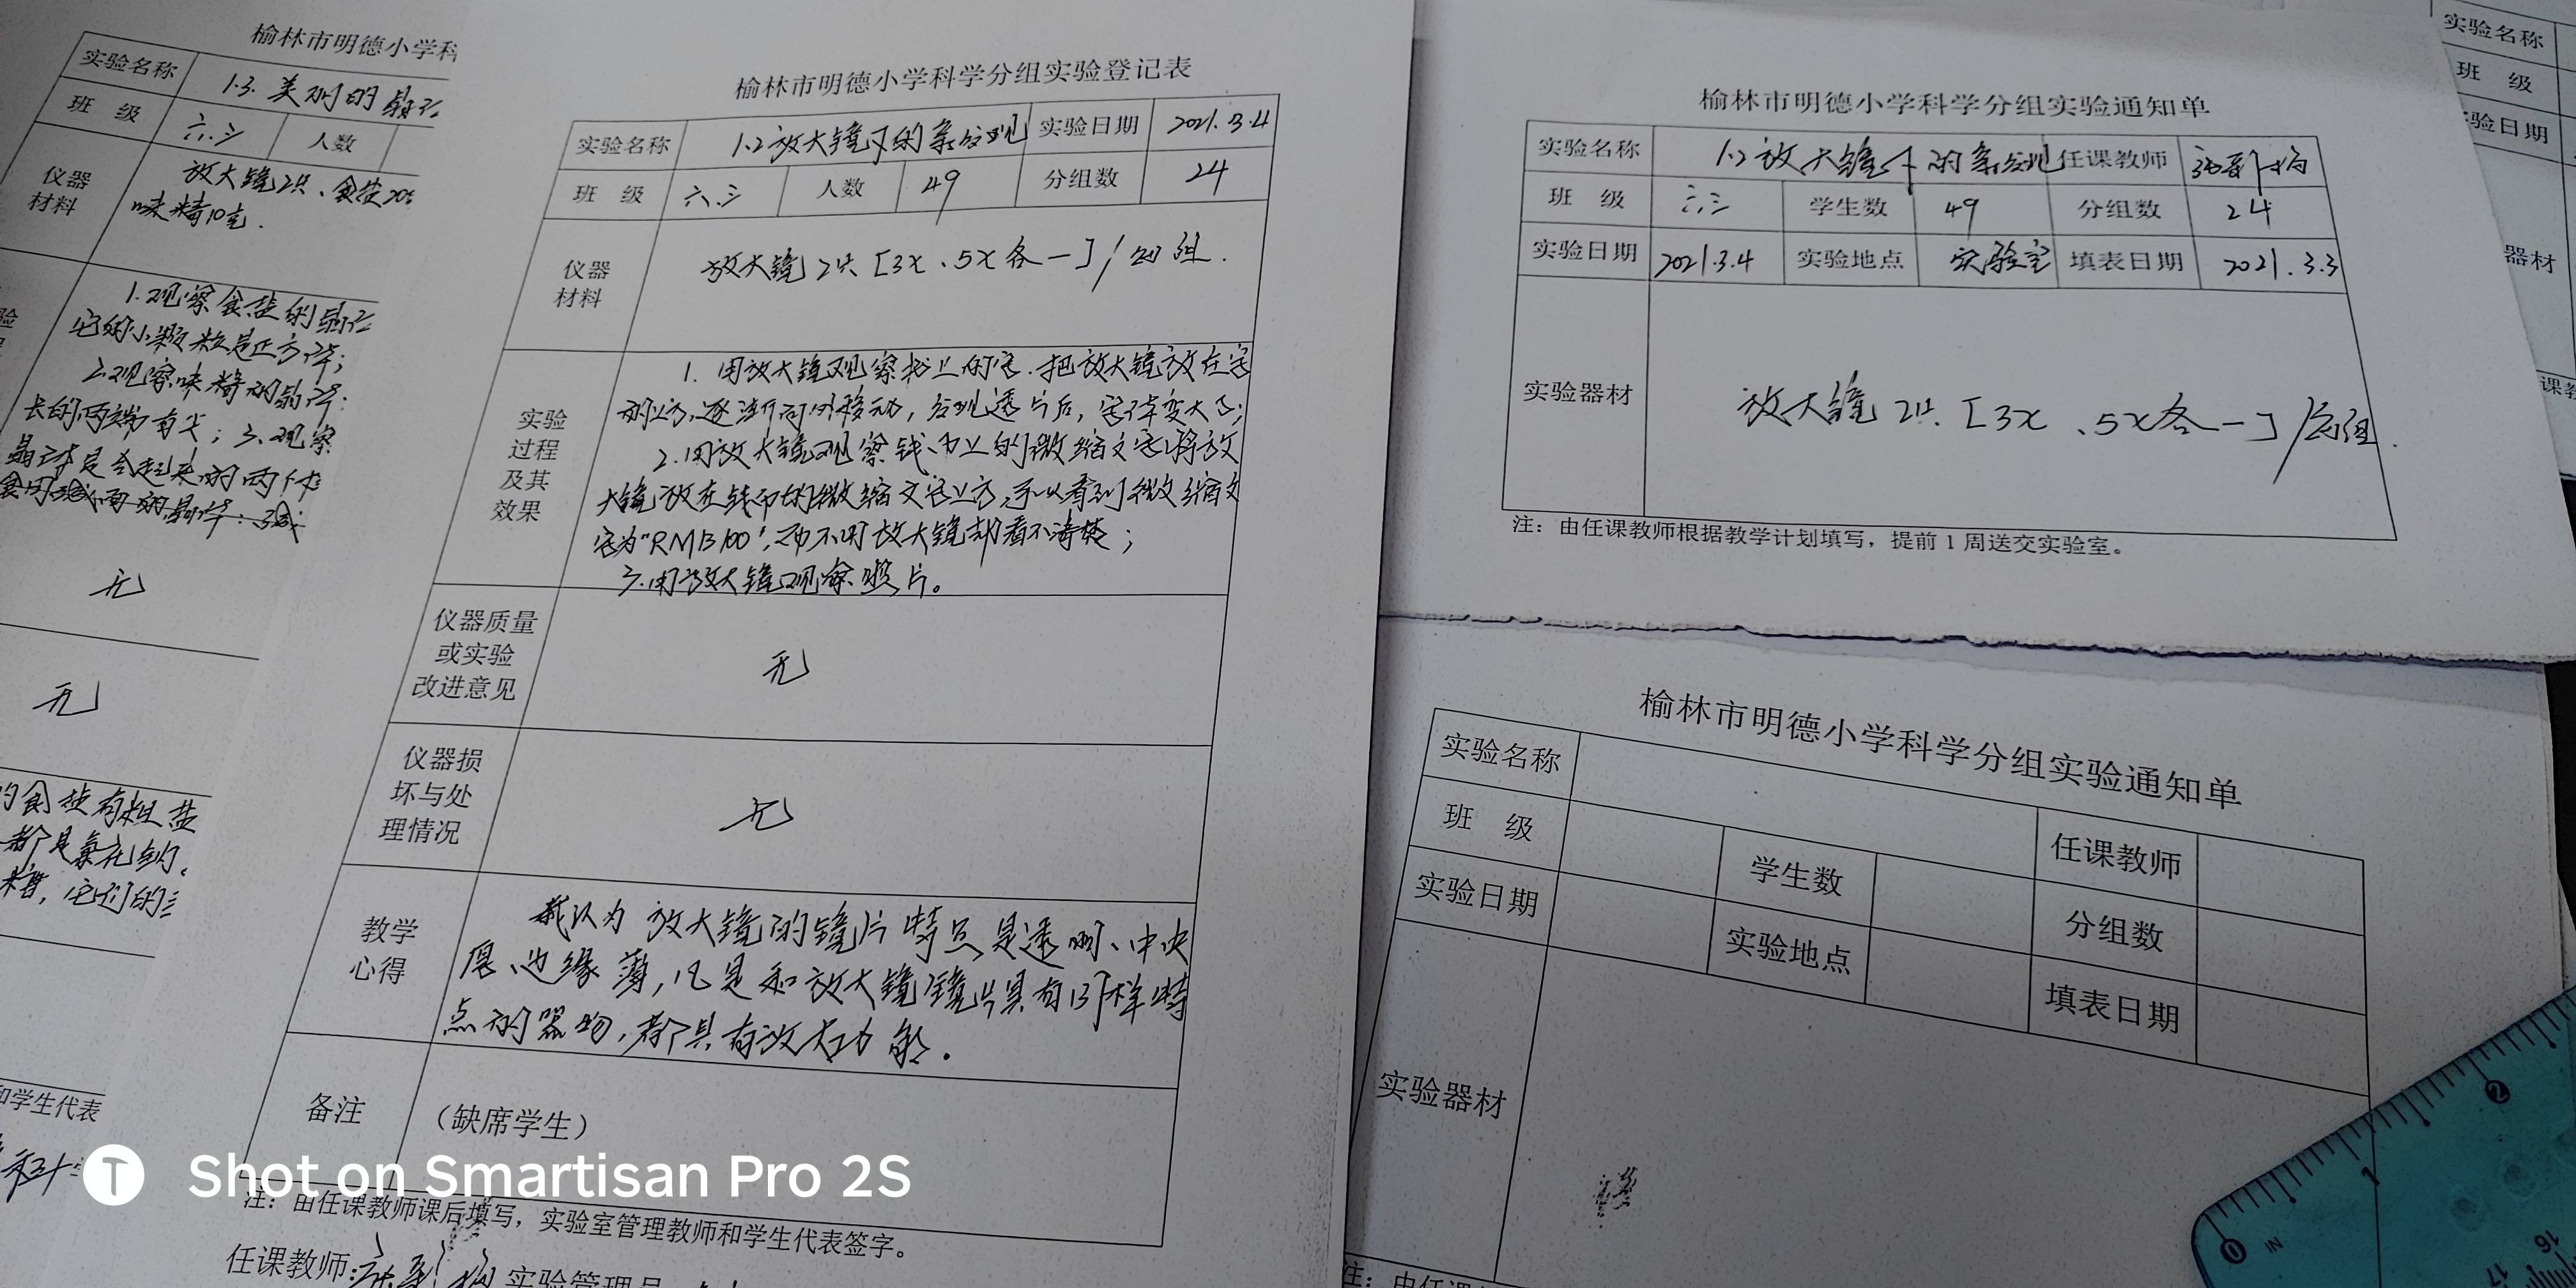 榆林市明德小学科
实验名称 1.3. 美丽的晶
班 级 六.三 人数
仪器材料 放大镜2只、食盐20
味精10克.
1.观察食盐的晶
它的小颗粒是正方体;
2.观察味精的晶体:
长的,两端有尖; 3.观察
晶体是合起来的两个
无
无
的食盐有粗盐
都是氯化钠.
和学生代表
榆林市明德小学科学分组实验登记表
实验名称 1.2放大镜下的新发现 实验日期 2021.3.4
班 级 六.三 人数 49 分组数 24
仪器材料 放大镜2只 [3x、5x各一] / 每组.
实验过程及其效果
1. 用放大镜观察书上的字.把放大镜放在字
的上方,逐渐向外移动,发现透片后,字体变大了;
2.用放大镜观察钱币上的微缩文字,将放
大镜放在钱币的微缩文字上方,可以看到微缩文
字为"RMB100",而不用放大镜却看不清楚;
3.用放大镜观察照片。
仪器质量或实验改进意见 无
仪器损坏与处理情况 无
教学心得
我认为放大镜的镜片特点是透明、中央
厚、边缘薄,凡是和放大镜镜片具有同样特
点的器物,都具有放大功能.
备注 (缺席学生)
注：由任课教师课后填写，实验室管理教师和学生代表签字。
任课教师: 实验管理员
榆林市明德小学科学分组实验通知单
实验名称 1.2放大镜下的新发现 任课教师
班 级 六.三 学生数 49 分组数 24
实验日期 2021.3.4 实验地点 实验室 填表日期 2021.3.3
实验器材 放大镜2只. [3x、5x各一] / 每组.
注：由任课教师根据教学计划填写，提前 1 周送交实验室。
榆林市明德小学科学分组实验通知单
实验名称 任课教师
班 级 学生数 分组数
实验日期 实验地点 填表日期
实验器材
注：由任课
实验名称
班 级
验日期
器材
课教
0 IN 1 2
16
17
Shot on Smartisan Pro 2S